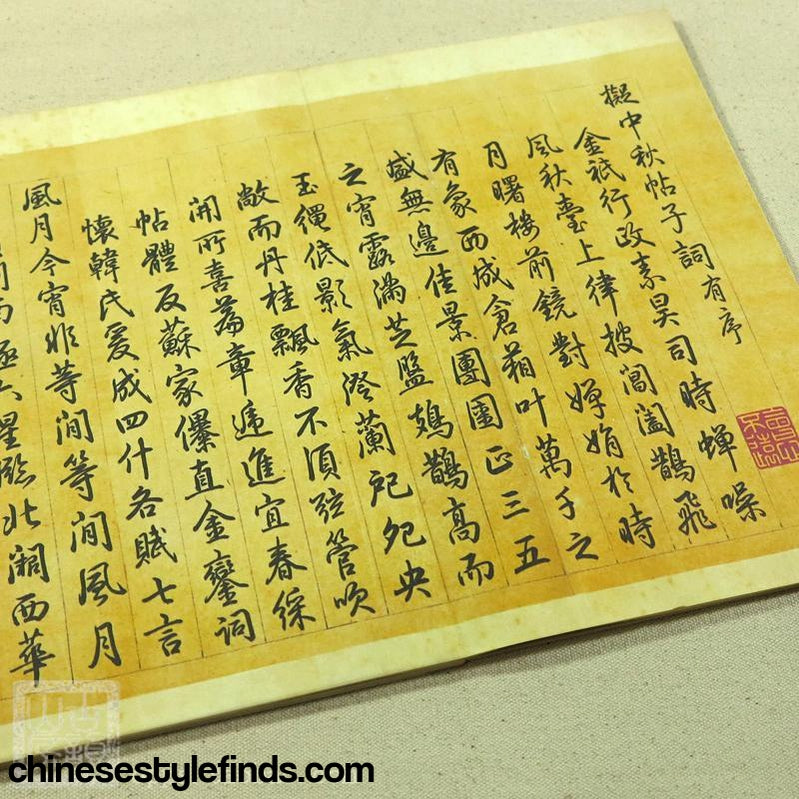 擬中秋帖子詞有序
金祇行政素昊司時蟬噪
風秋臺上律披閶闔鵲飛
月曙樓前鏡對嬋娟於時
有象西成倉箱叶萬千之
盛無邊佳景團圞正三五
之宵露滿芝盤鳷鵲高而
玉繩低影氣澄蘭祀夗央
敞而丹桂飄香不須弦管吹
開所喜篇章遞進宜春綵
帖體反蘇家儤直金鑾詞
懷韓氏爰成四什各賦七言
風月今宵非等閒等閒風月
極六星北西華
chinesestylefinds.com